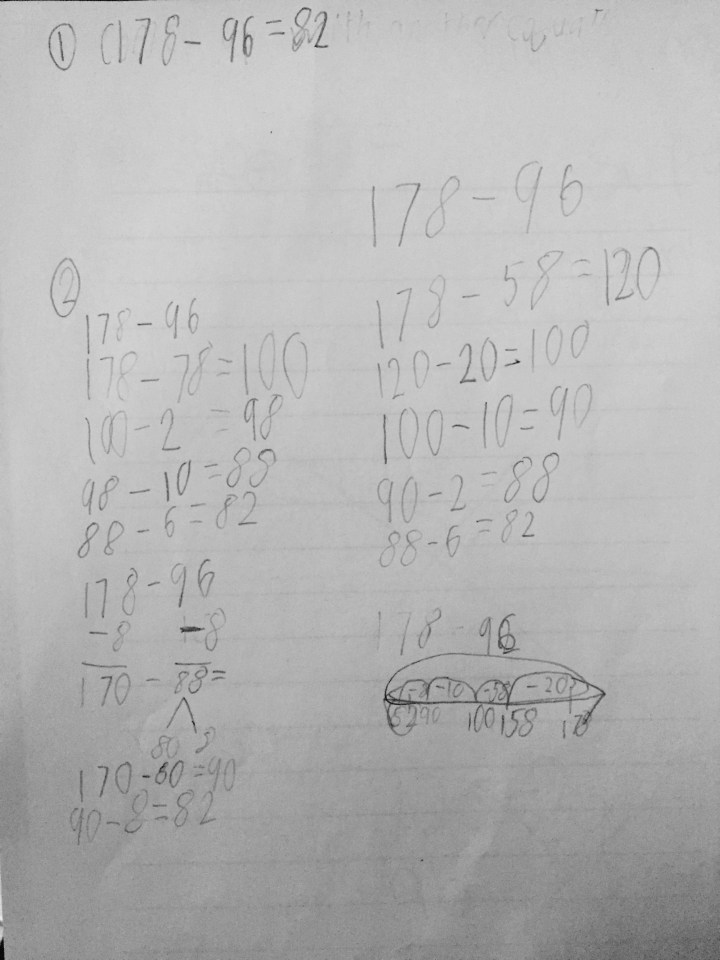 ① (178 - 96 = 82
②
178 - 96
178 - 78 = 100
100 - 2 = 98
98 - 10 = 88
88 - 6 = 82
178 - 96
-8 -8
170 - 88 =
80 8
170 - 80 = 90
90 - 8 = 82
178 - 96
178 - 58 = 120
120 - 20 = 100
100 - 10 = 90
90 - 2 = 88
88 - 6 = 82
178 - 96
-8 -10 -58 -20
82 90 100 158 178